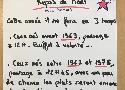 Repas de Noël
Cette année il se fera en 3 temps
. Ceux nés avant 1963, passage
à 12H. Buffet à volonté
. Ceux nés entre 1963 et 1978,
passage à 12H45, avec un peu
de chance les plats seront encore